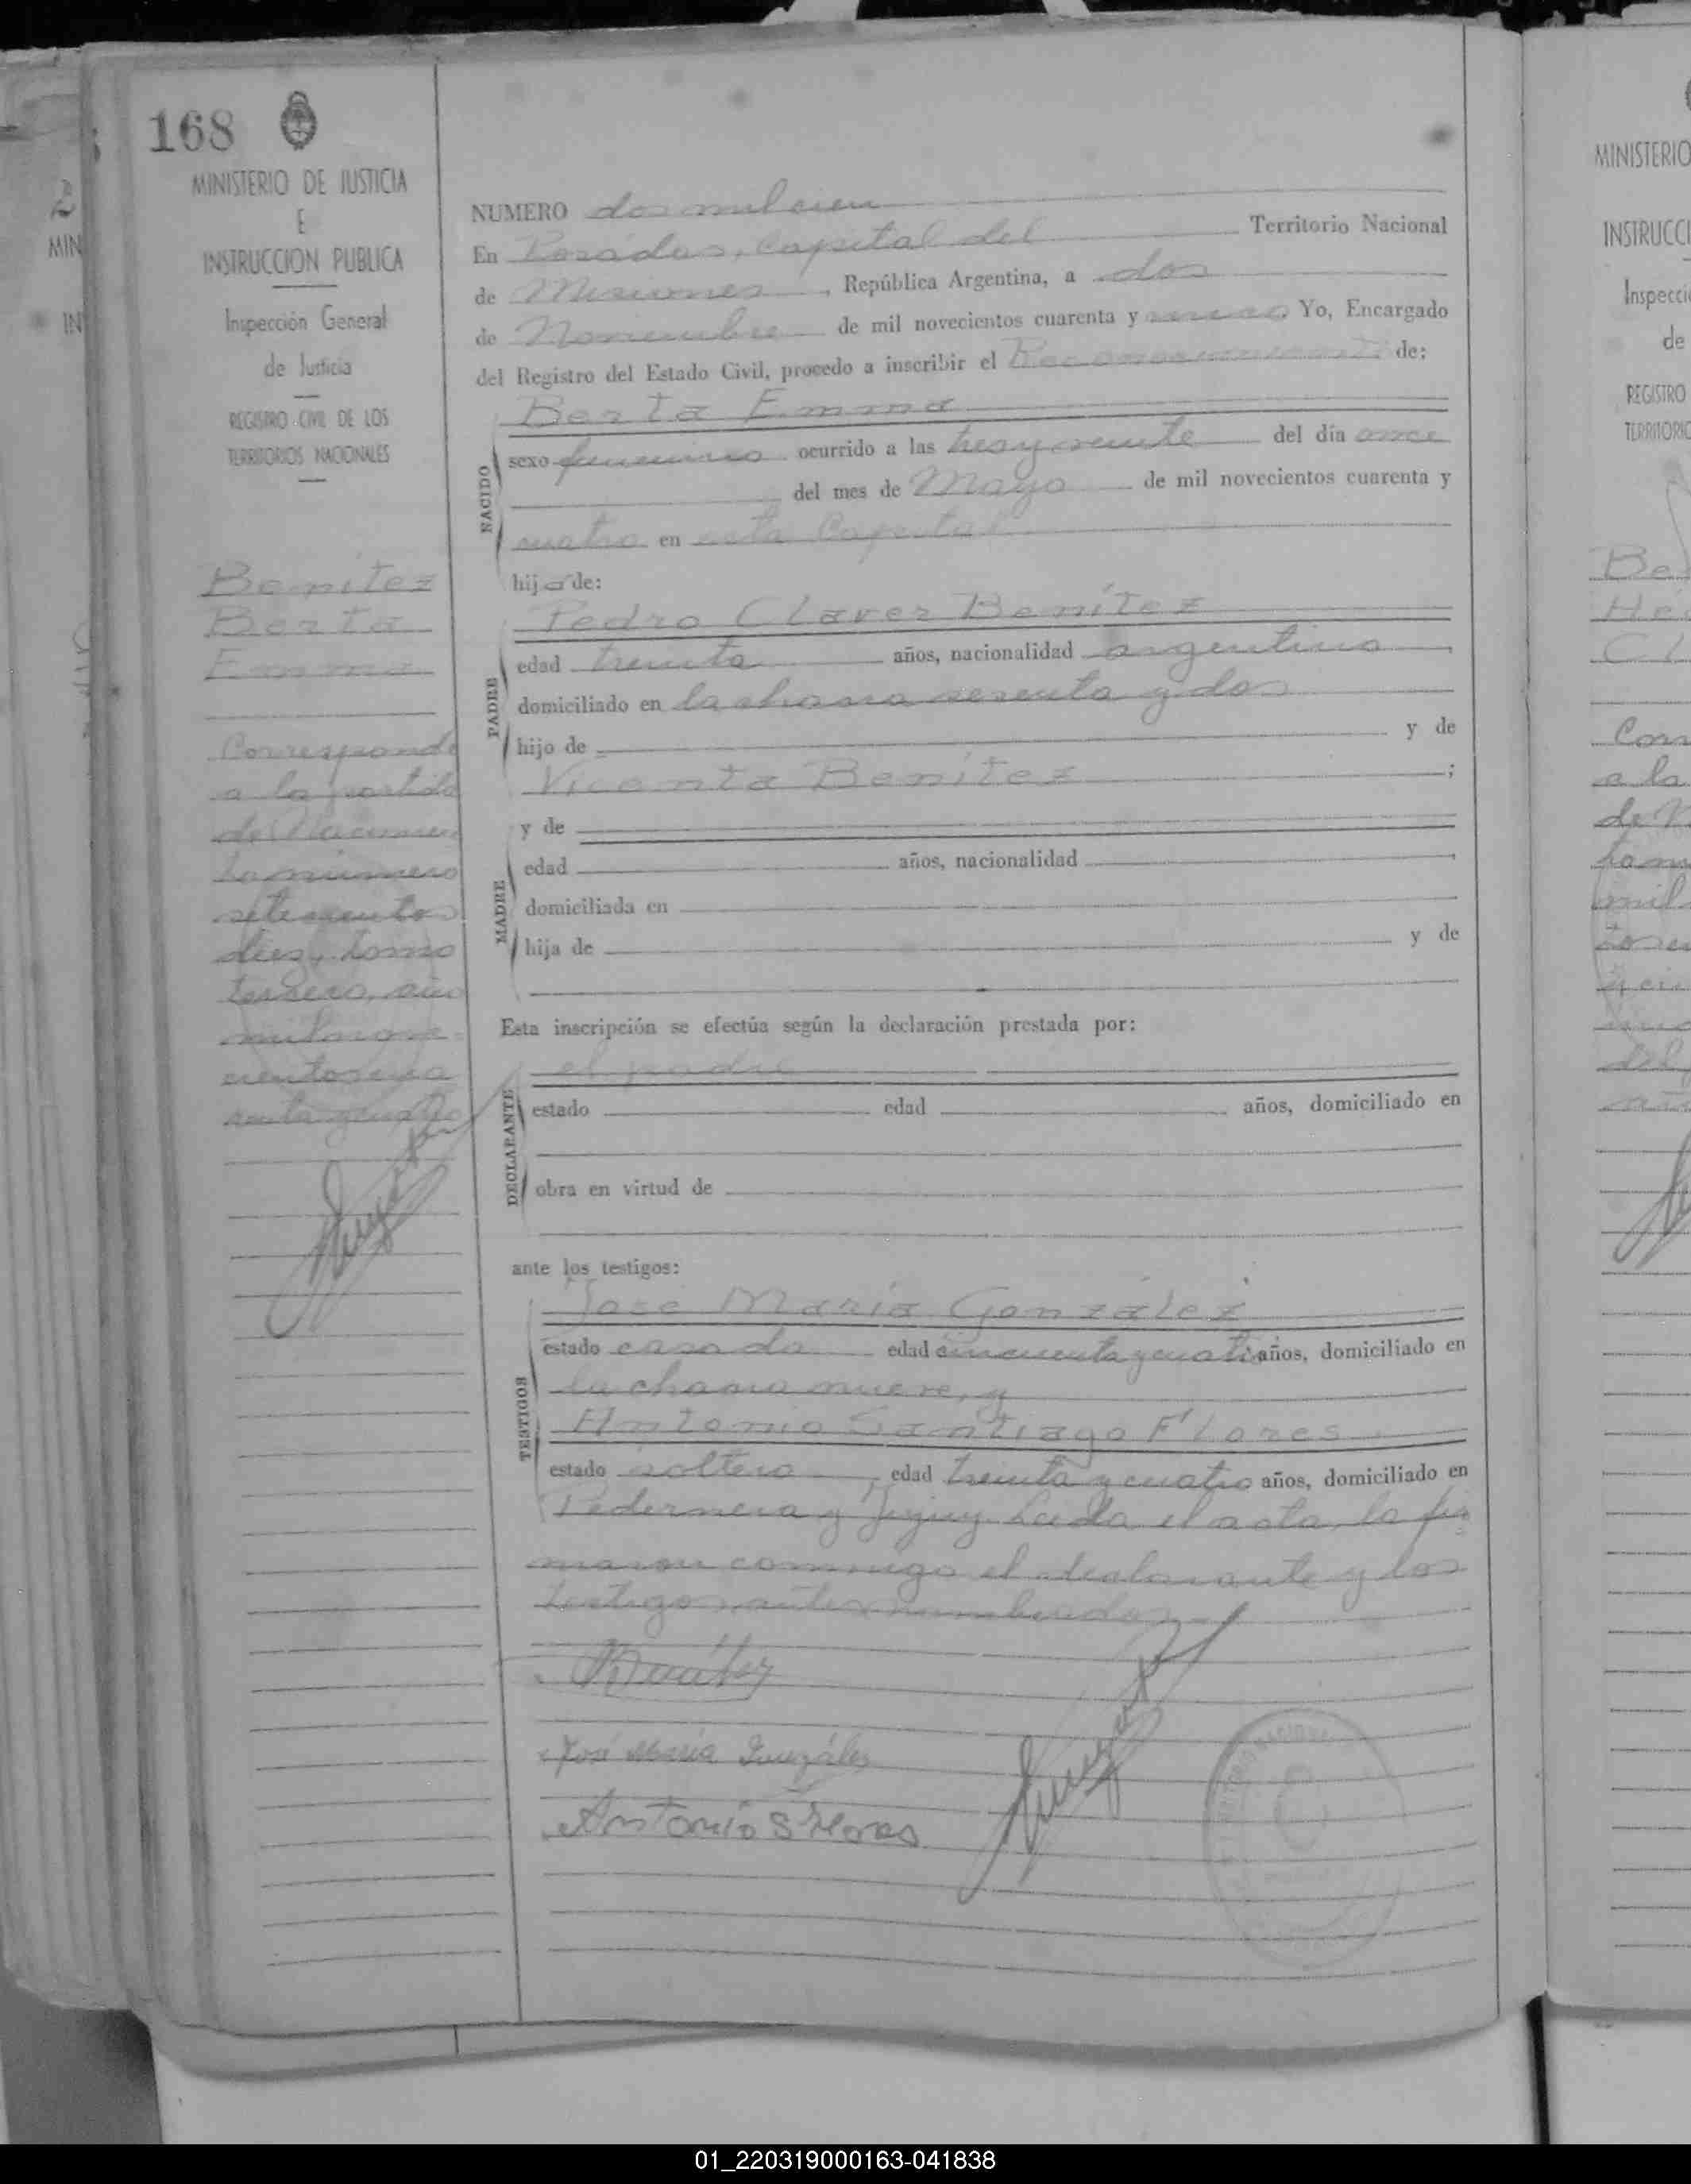 168
MINISTERIO DE JUSTICIA
E
INSTRUCCION PUBLICA
Inspección General
de Justicia
REGISTRO CIVIL DE LOS
TERRITORIOS NACIONALES
Benítez
Berta
Emma
Corresponde
a la partida
de Nacimien
to número
setecientos
diez, tomo
tercero, año
mil nove-
cientos cua
renta y cuatro
NUMERO dos mil cien
En Posadas, Capital del Territorio Nacional
de Misiones, República Argentina, a dos
de Noviembre de mil novecientos cuarenta y Yo, Encargado
del Registro del Estado Civil, procedo a inscribir el Reconocimiento de:
Berta Emma
NACIDO
sexo femenino ocurrido a las tres y veinte del día once
del mes de Mayo de mil novecientos cuarenta y
cuatro en esta Capital
hija de:
Pedro Claver Benítez
PADRE
edad treinta años, nacionalidad argentino,
domiciliado en la chacra sesenta y dos
hijo de y de
Vicenta Benítez;
y de
MADRE
edad años, nacionalidad
domiciliada en
hija de y de
Esta inscripción se efectúa según la declaración prestada por:
el padre
DECLARANTE
estado edad años, domiciliado en
obra en virtud de
ante los testigos:
José María González
TESTIGOS
estado casado edad cincuenta y cuatro años, domiciliado en
la chacra nueve, y
Antonio Santiago Flores
estado soltero, edad treinta y cuatro años, domiciliado en
Pedernera y Jujuy. Leída el acta, la fir
maron conmigo el declarante y los
testigos antes nombrados.
Benítez
José María González
Antonio S Flores
MINISTERIO
INSTRUCCI
Inspecció
de
REGISTRO
TERRITORIO
01_220319000163-041838